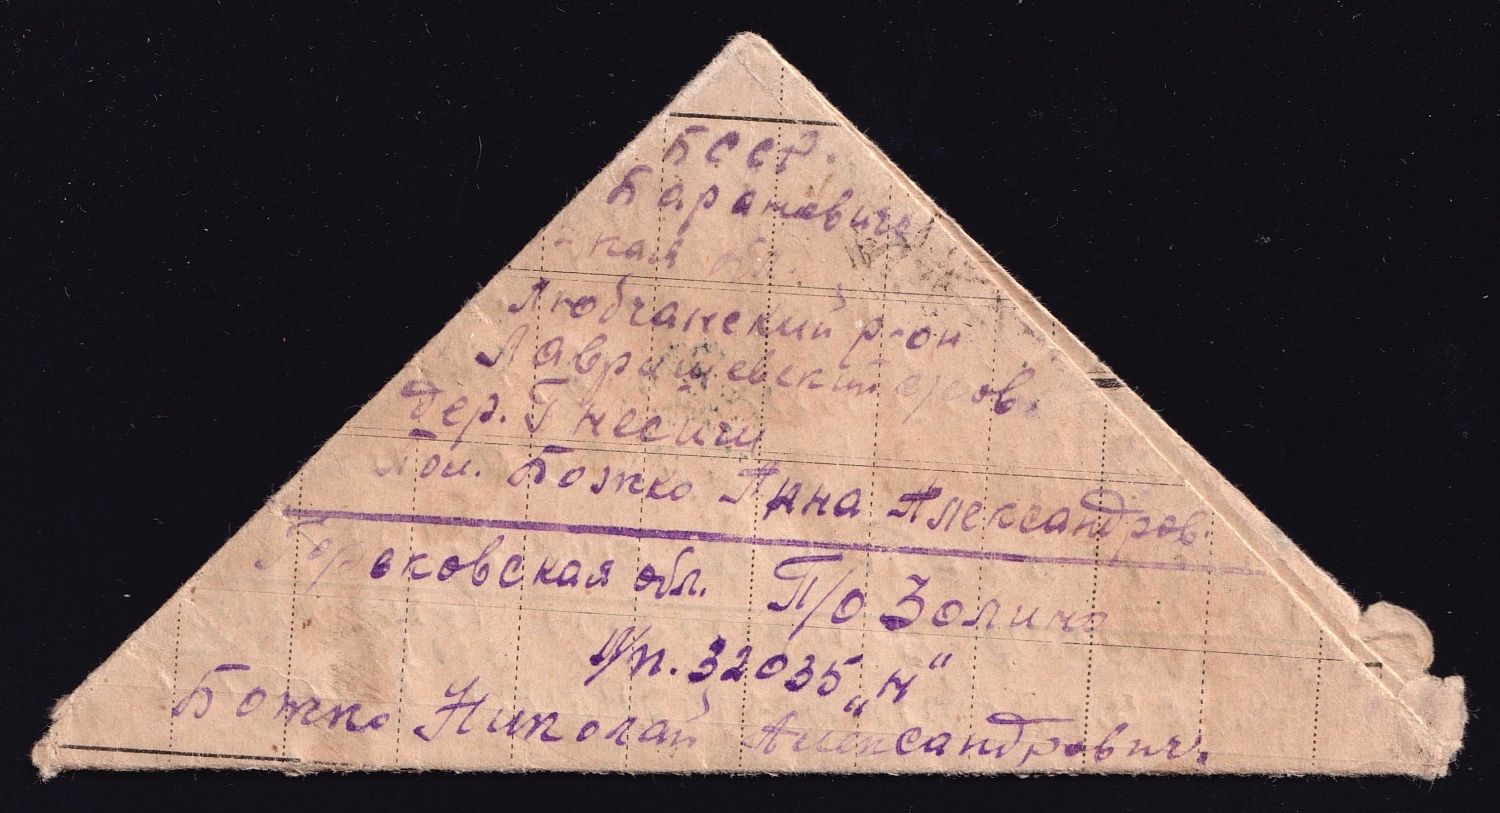 БССР.
Баранович
-кая обл.
Любчанский р-он
Лавришевский с/сов.
дер. Гнесичи
Пол. Божко Анна Александров.
Горьковская обл. П/о Золино
В/ч. 32035 „Н“
Божко Николай Александрович.